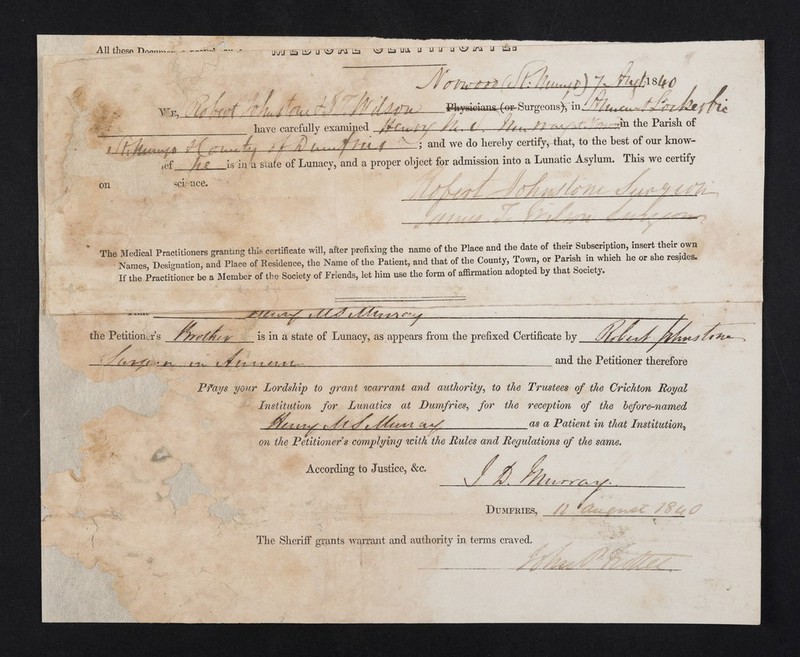 All these
MEDICAL CERTIFICATE.
Norwood (St. Mungo) 7 Augt. 1840
We, Robert Johnstone & J T Wilson Physicians (or Surgeons), in Annan & Lockerbie
have carefully examined Henry in the Parish of
St. Mungo & County of Dumfries ; and we do hereby certify, that, to the best of our know-
ief he is in a state of Lunacy, and a proper object for admission into a Lunatic Asylum. This we certify
on science.
Robert Johnstone Surgeon
James T. Wilson Surgeon
The Medical Practitioners granting this certificate will, after prefixing the name of the Place and the date of their Subscription, insert their own
Names, Designation, and Place of Residence, the Name of the Patient, and that of the County, Town, or Parish in which he or she resides.
If the Practitioner be a Member of the Society of Friends, let him use the form of affirmation adopted by that Society.
Henry Murray
the Petitioner's Brother is in a state of Lunacy, as appears from the prefixed Certificate by Robert Johnstone
Surgeon in Annan and the Petitioner therefore
Prays your Lordship to grant warrant and authority, to the Trustees of the Crichton Royal
Institution for Lunatics at Dumfries, for the reception of the before-named
Henry Murray as a Patient in that Institution,
on the Petitioner's complying with the Rules and Regulations of the same.
According to Justice, &c.
J. D. Murray.
DUMFRIES, 11 August 1840
The Sheriff grants warrant and authority in terms craved.
John